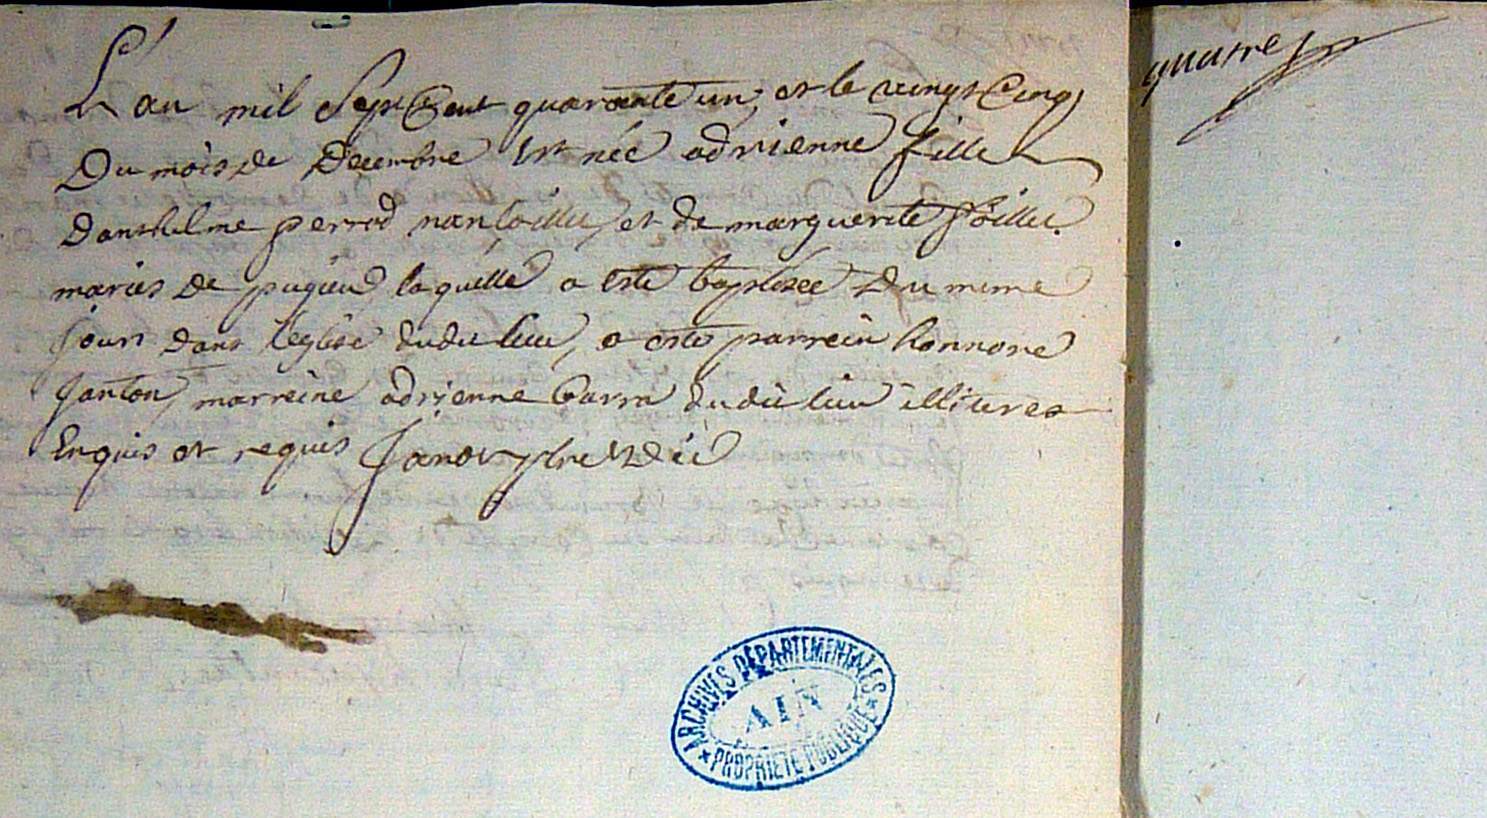 L'an mil Sept Cent quarante un, et le vingt Cinq
Du mois de Decembre Est née adrienne fille
Danthelme perrod nantoillie, et de marguerite
maries de pugieu laquelle a esté baptisée Du meme
jour dans l'eglise dudit lieu, a esté parrein honnore
Janton, marreine adrienne barra dudit lieu illiteres
Enquis et requis
quatre
ARCHIVES DÉPARTEMENTALES
AIN
PROPRIÉTÉ PUBLIQUE